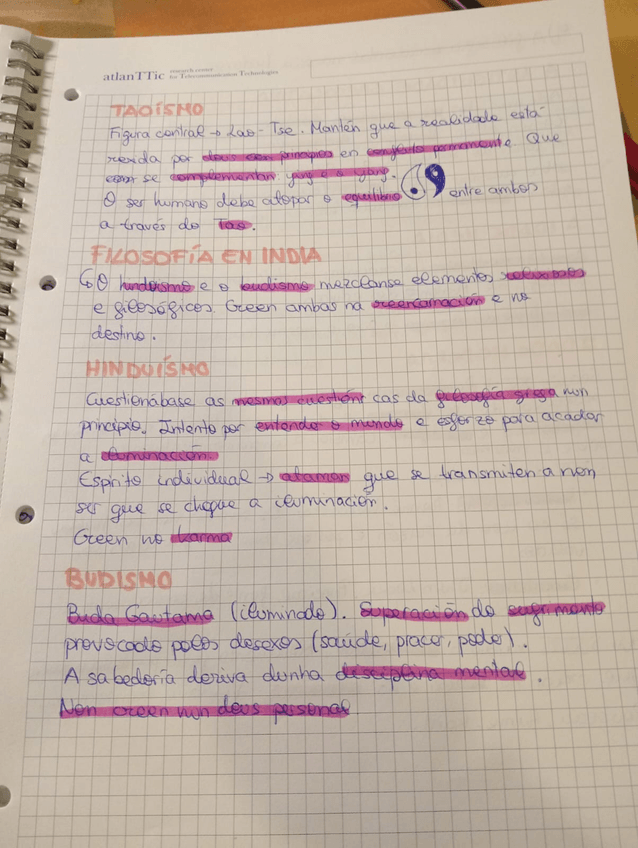 atlanTTic research center for Telecommunication Technologies
TAOÍSMO
Figura central → Lao-Tse. Mantén que a realidade está
rexida por dous principios en conflicto permanente. Que
se complementan yang e o yang.
O ser humano debe atopar o equilibrio entre ambos
a través do Tao.
FILOSOFÍA EN INDIA
O hinduísmo e o budismo mezclanse elementos relixiosos
e filosóficos. Creen ambas na reencarnación e no
destino.
HINDUÍSMO
Cuestionábase as mesmas cuestións cas da filosofía grega nun
principio. Intento por entender o mundo e esforzo para acadar
a iluminación.
Espírito individual → atamán que se transmiten a non
ser que se chegue a iluminación.
Creen no karma
BUDISMO
Buda Gautama (iluminado). Superación do sufrimento
provocado polos desexos (saúde, pracer, poder).
A sabedoría deriva dunha disciplina mental.
Non creen nun deus personal